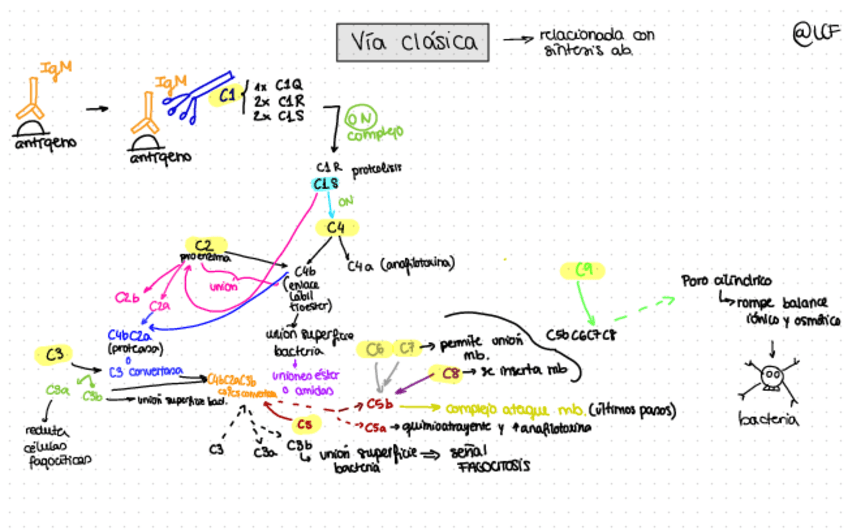 Vía clásica
relacionada con
síntesis ab.
@LCF
IgM
antígeno
IgM
antígeno
C1
1x C1Q
2x C1R
2x C1S
ON
complejo
C1R
C1S
proteolisis
ON
C4
C4a (anafilotoxina)
C4b
(enlace
lábil
tioester)
C2
proenzima
unión
C2b
C2a
C4bC2a
(proteasa)
o
C3 convertasa
unión superficie
bacteria
unioneo éster
o amidas
C3
C3a
C3b
reduta
células
fagocíticas
unión superficie bact.
C4bC2aC3b
C3
C3a
C3b
unión superficie
bacteria
señal
FAGOCITOSIS
C5
C5b
C5a
quimioatrayente y ↑anafilotoxina
complejo ataque mb. (últimos pasos)
C6
C7
permite unión
mb.
C8
se inserta mb
C9
C5bC6C7C8
Poro cilíndrico
rompe balance
iónico y osmótico
bacteria